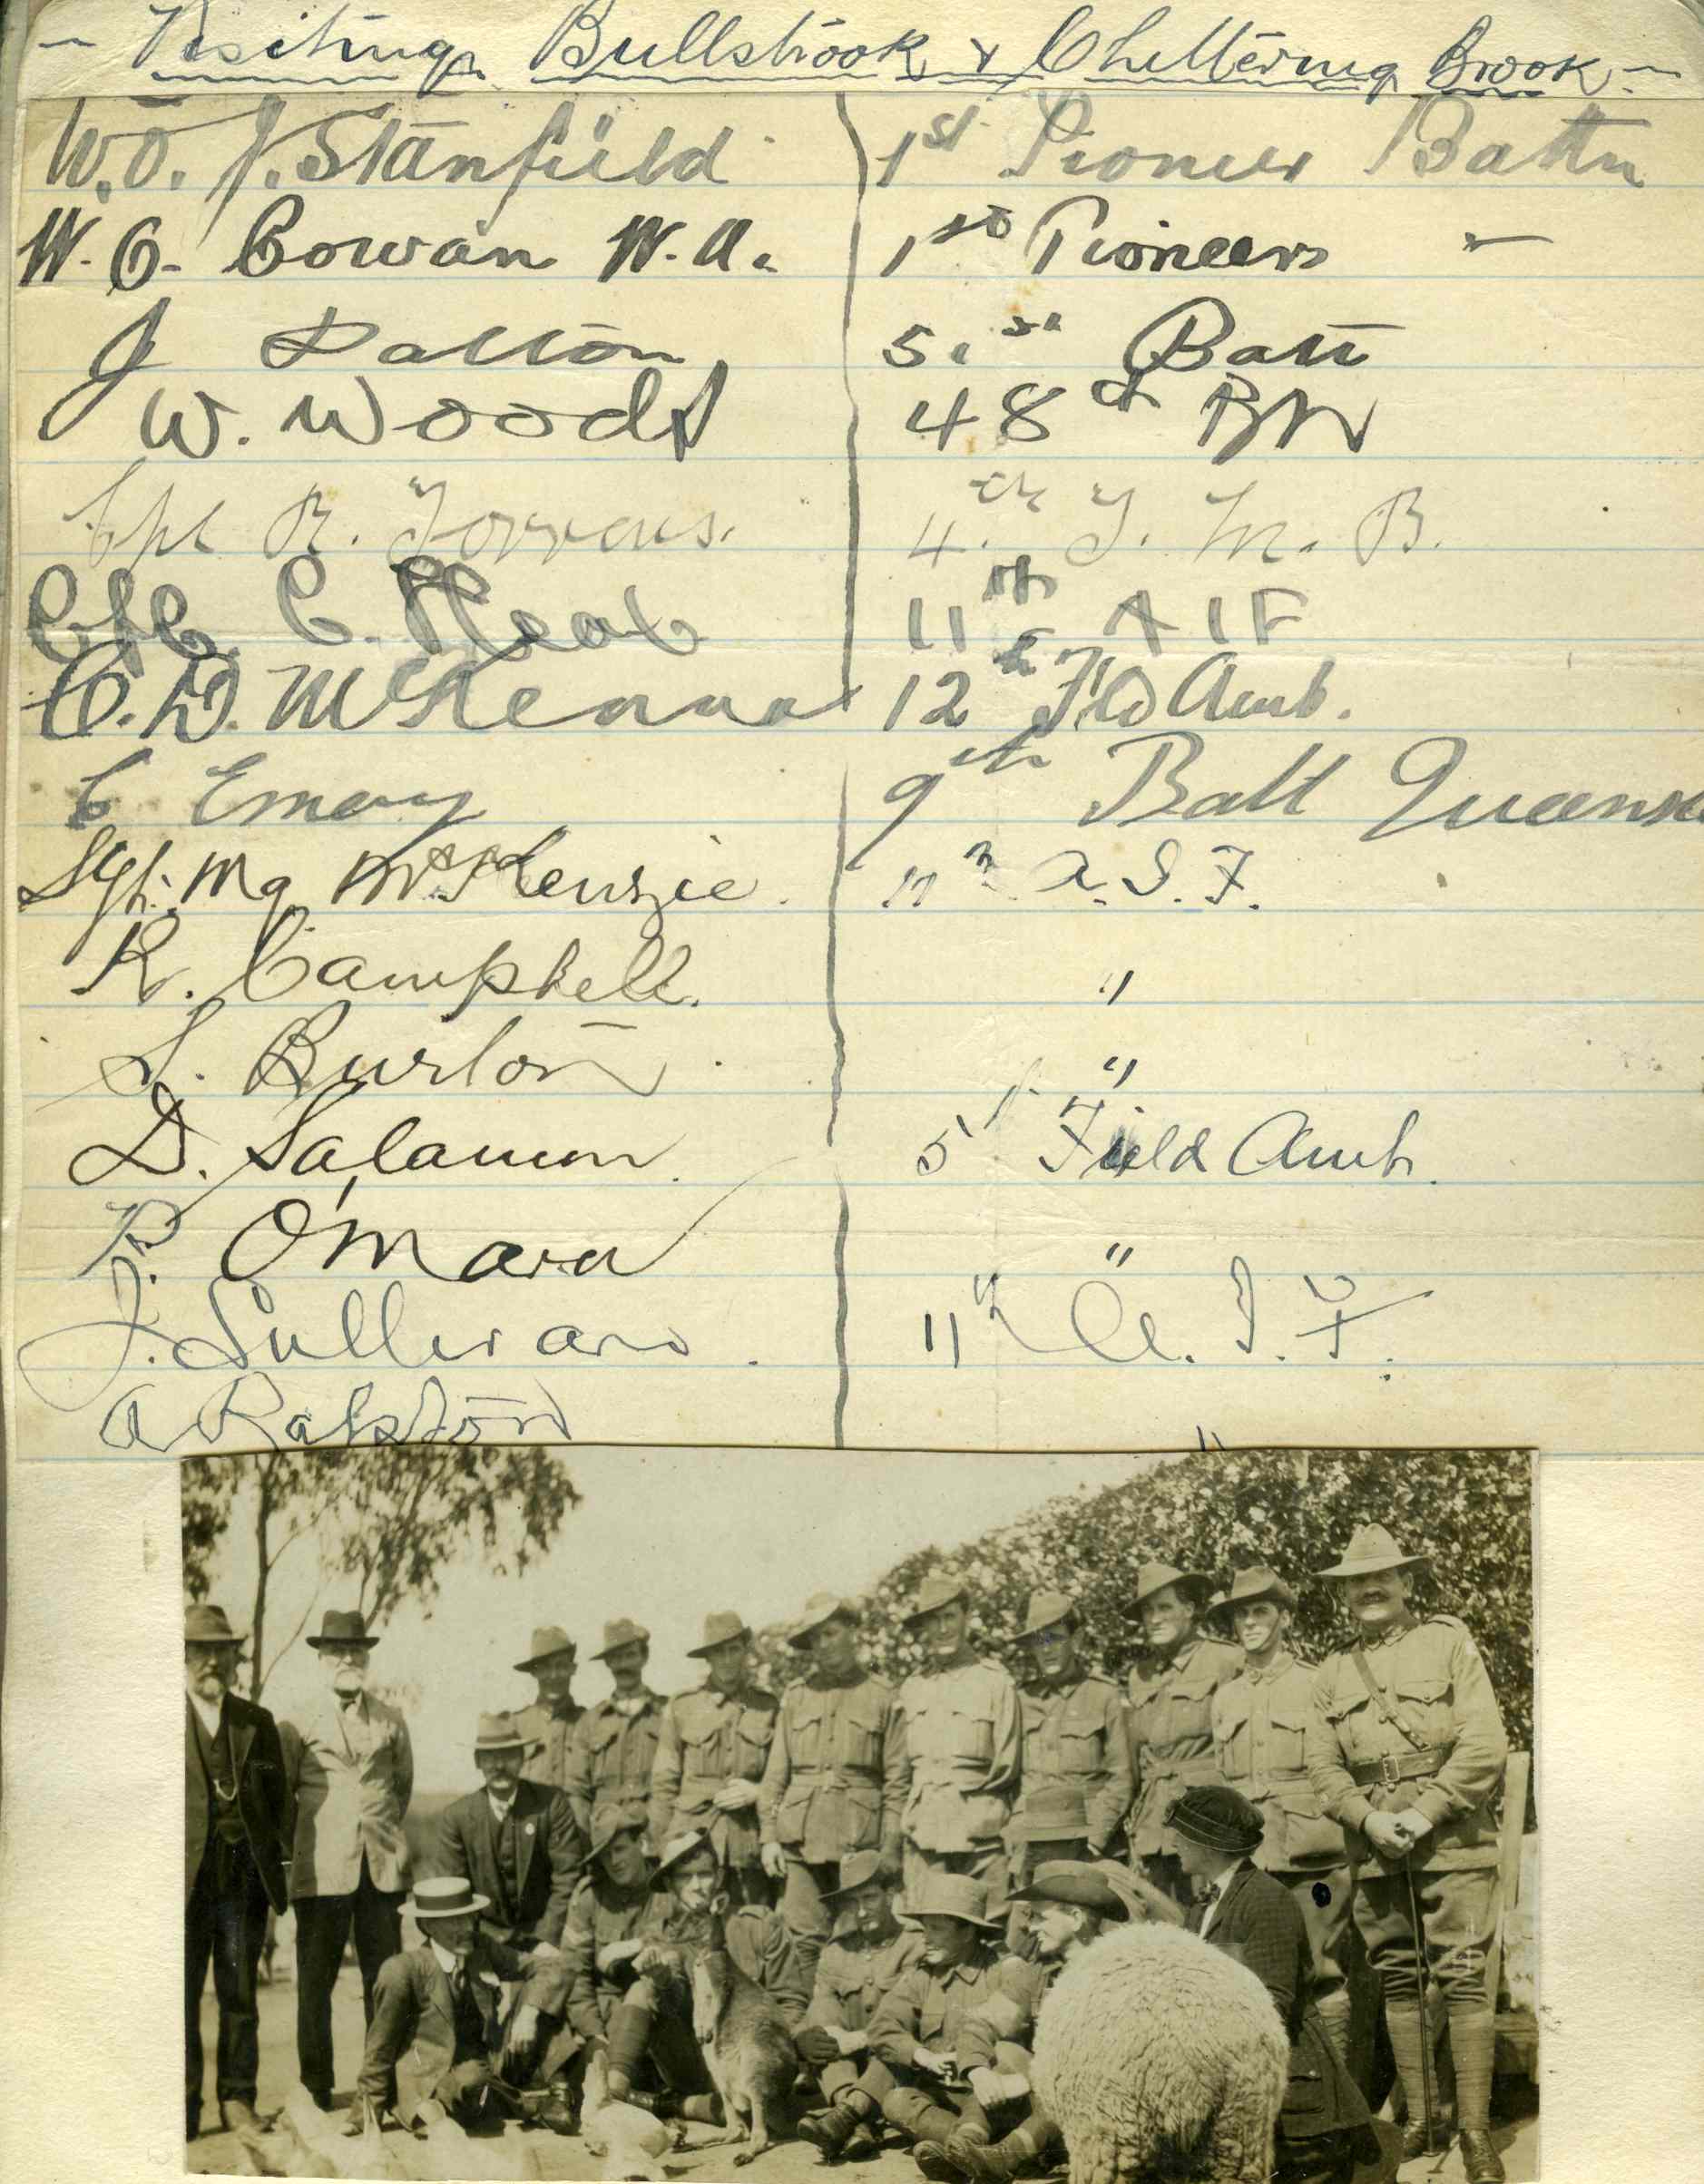 - Visiting Bullsbrook & Chittering Brook -
W.O. J. Stanfield 1st Pioneer Battn
W. C. Cowan W.A. 1st Pioneers "
J Dalton 51st Batt
W. Woods 48th BN
Cpl R. Torrens. 4th T. M. B.
Cpl C. 11th AIF
C. D. McKenna 12th Fld Amb.
C Emery 9th Batt Queensl
Sgt. Mg McKenzie. 11th A.I.F.
R. Campbell. "
S. Burton "
D. Salamon. 5th Field Amb.
P. O'Mara "
J. Sullivan. 11th A. I. F.
A Ralston "